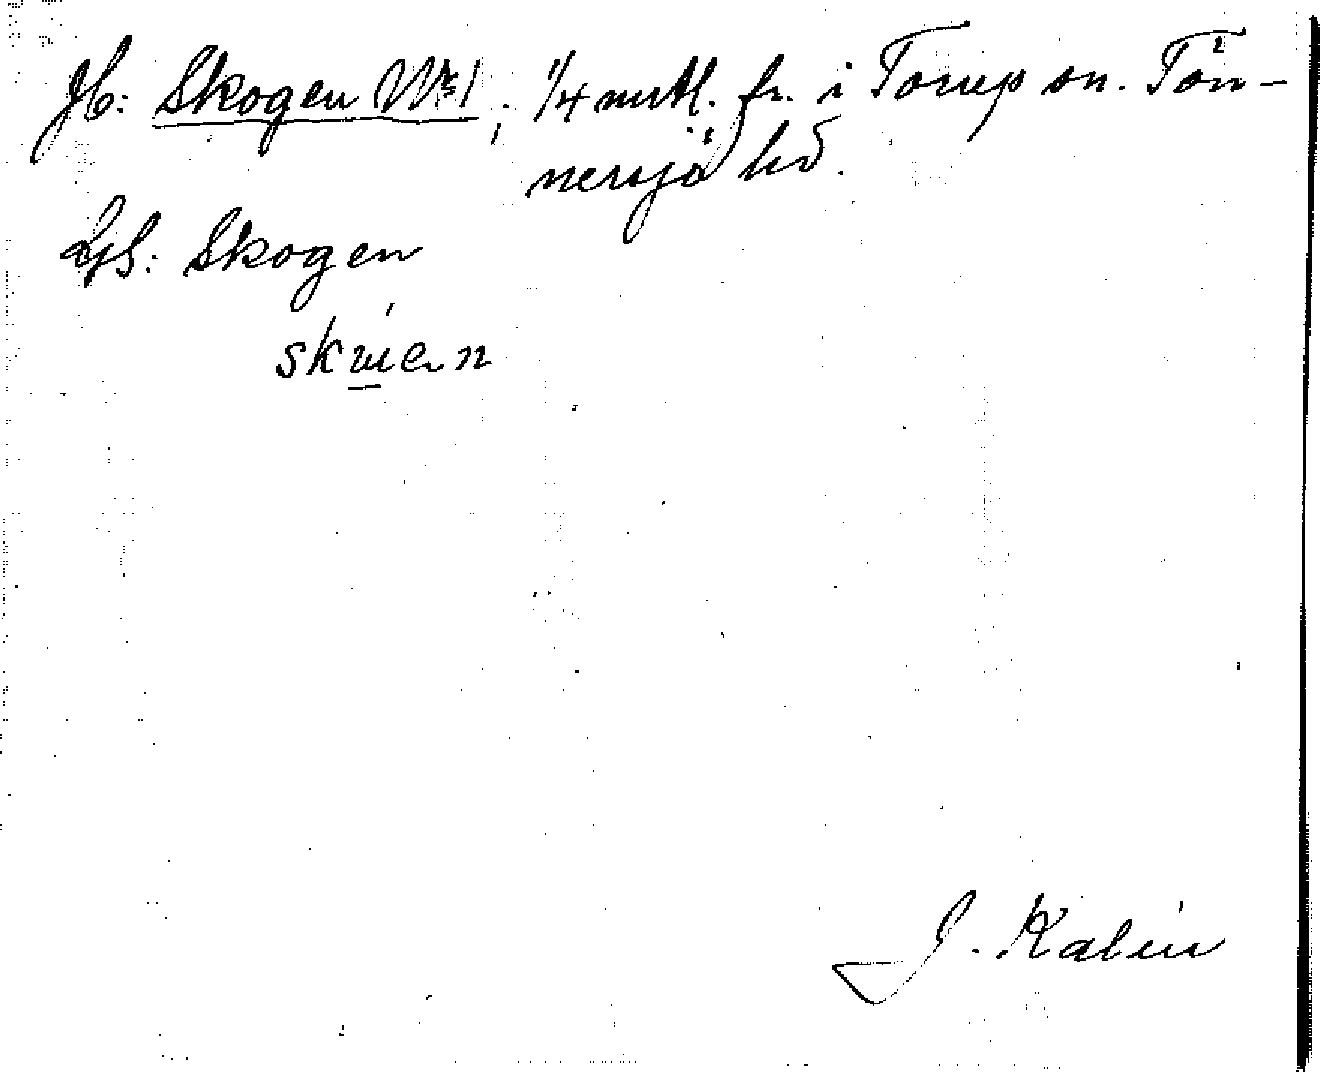 Jb: Skogen No 1, 1/4 mtl. fr. i Torup sn. Tön-
nersjö hd.
Skogen
J. Kalén